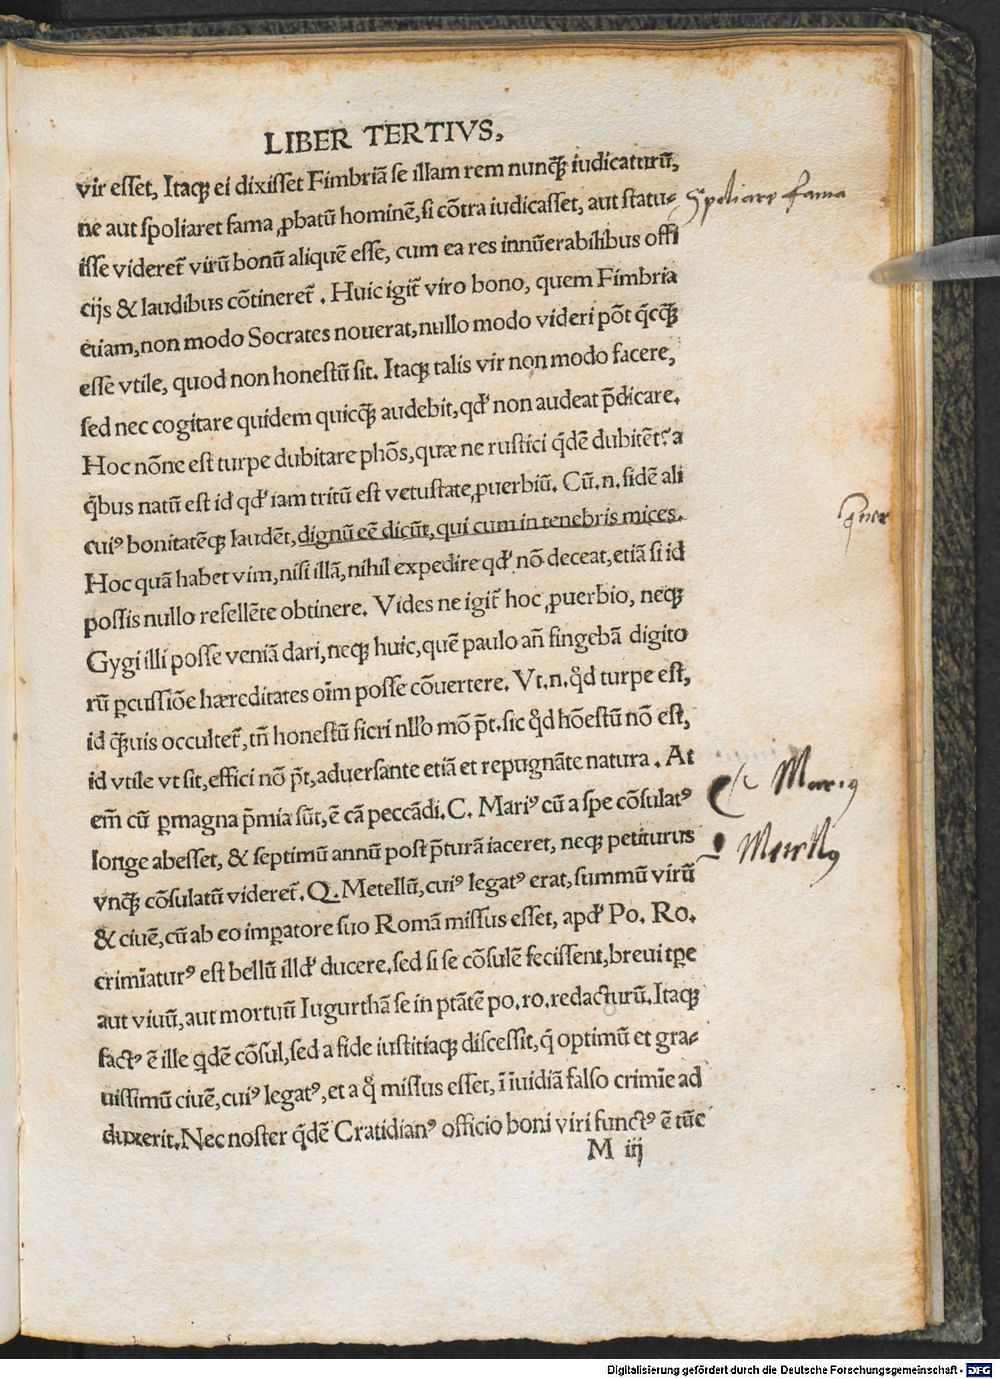 LIBER TERTIVS,
vir esset, Itaqꝫ ei dixisset Fimbriā se illam rem nunqꝫ̄ iudicaturū,
ne aut spoliaret fama ꝓbatū hominē, si cōtra iudicasset, aut statu-
Spoliare fama
isse videret̄ virū bonū aliquē esse, cum ea res innūerabilibus offi
cijs & laudibus cōtineret̄. Huic igit̄ viro bono, quem Fimbria
etiam, non modo Socrates nouerat, nullo modo videri pōt q̄cqꝫ̄
esse vtile, quod non honestū sit. Itaqꝫ talis vir non modo facere,
sed nec cogitare quidem quicqꝫ̄ audebit, qđ non audeat p̄dicare.
Hoc nōne est turpe dubitare phōs, quæ ne rustici q̄dē dubitēt? a
q̄bus natū est id qđ iam tritū est vetustate ꝓuerbiū. Cū.n. fidē ali
cuiꝰ bonitatēqꝫ laudēt, dignū eē dicūt, qui cum in tenebris mices.
Hoc quā habet vim, nisi illā, nihil expedire qđ nō deceat, etiā si id
possis nullo refellēte obtinere. Vides ne igit̄ hoc ꝓuerbio, neqꝫ
Gygi illi posse veniā dari, neqꝫ huic, quē paulo añ fingebā digito
rū ꝑcussiōe hæreditates oīm posse cōuertere. Vt.n. qͦd turpe est,
id qꝫ̄uis occultet̄, tñ honestū fieri nłło mō p̄t. sic qͦd hōestū nō est,
id vtile vt sit, effici nō p̄t, aduersante etiā et repugnāte natura. At
em̄ cū ꝑmagna p̄mia sūt, ē cā peccādi. C. Mariꝰ cū a spe cōsulatꝰ
C Mariꝰ
longe abesset, & septimū annū post p̄turā iaceret, neqꝫ petiturus
vnqꝫ̄ cōsulatū videret̄. Q. Metellū, cuiꝰ legatꝰ erat, summū virū
Metellꝰ
& ciuē, cū ab eo imꝑatore suo Romā missus esset, apđ Po. Ro.
crimīaturꝰ est bellū illđ ducere, sed si se cōsulē fecissent, breui tꝑe
aut viuū, aut mortuū Iugurthā se in ptātē po. ro. redacturū. Itaqꝫ
factꝰ ē ille q̄dē cōsul, sed a fide iustitiaqꝫ discessit, q̄ optimū et gra-
uissimū ciuē, cuiꝰ legatꝰ, et a qͦ missus esset, ī īuidiā falso crimīe ad
duxerit. Nec noster q̄dē Cratidianꝰ officio boni viri functꝰ ē tūc
M iij
Digitalisierung gefördert durch die Deutsche Forschungsgemeinschaft - DFG